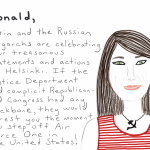 onald,
in and the Russian
garchs are celebrating
ur treasonous
tatements and actions
Helsinki. If the
tice Department
d complicit Republicans
Congress had any
ckbone, they would
rest you the moment
u step off Air
rce One in
e United States!